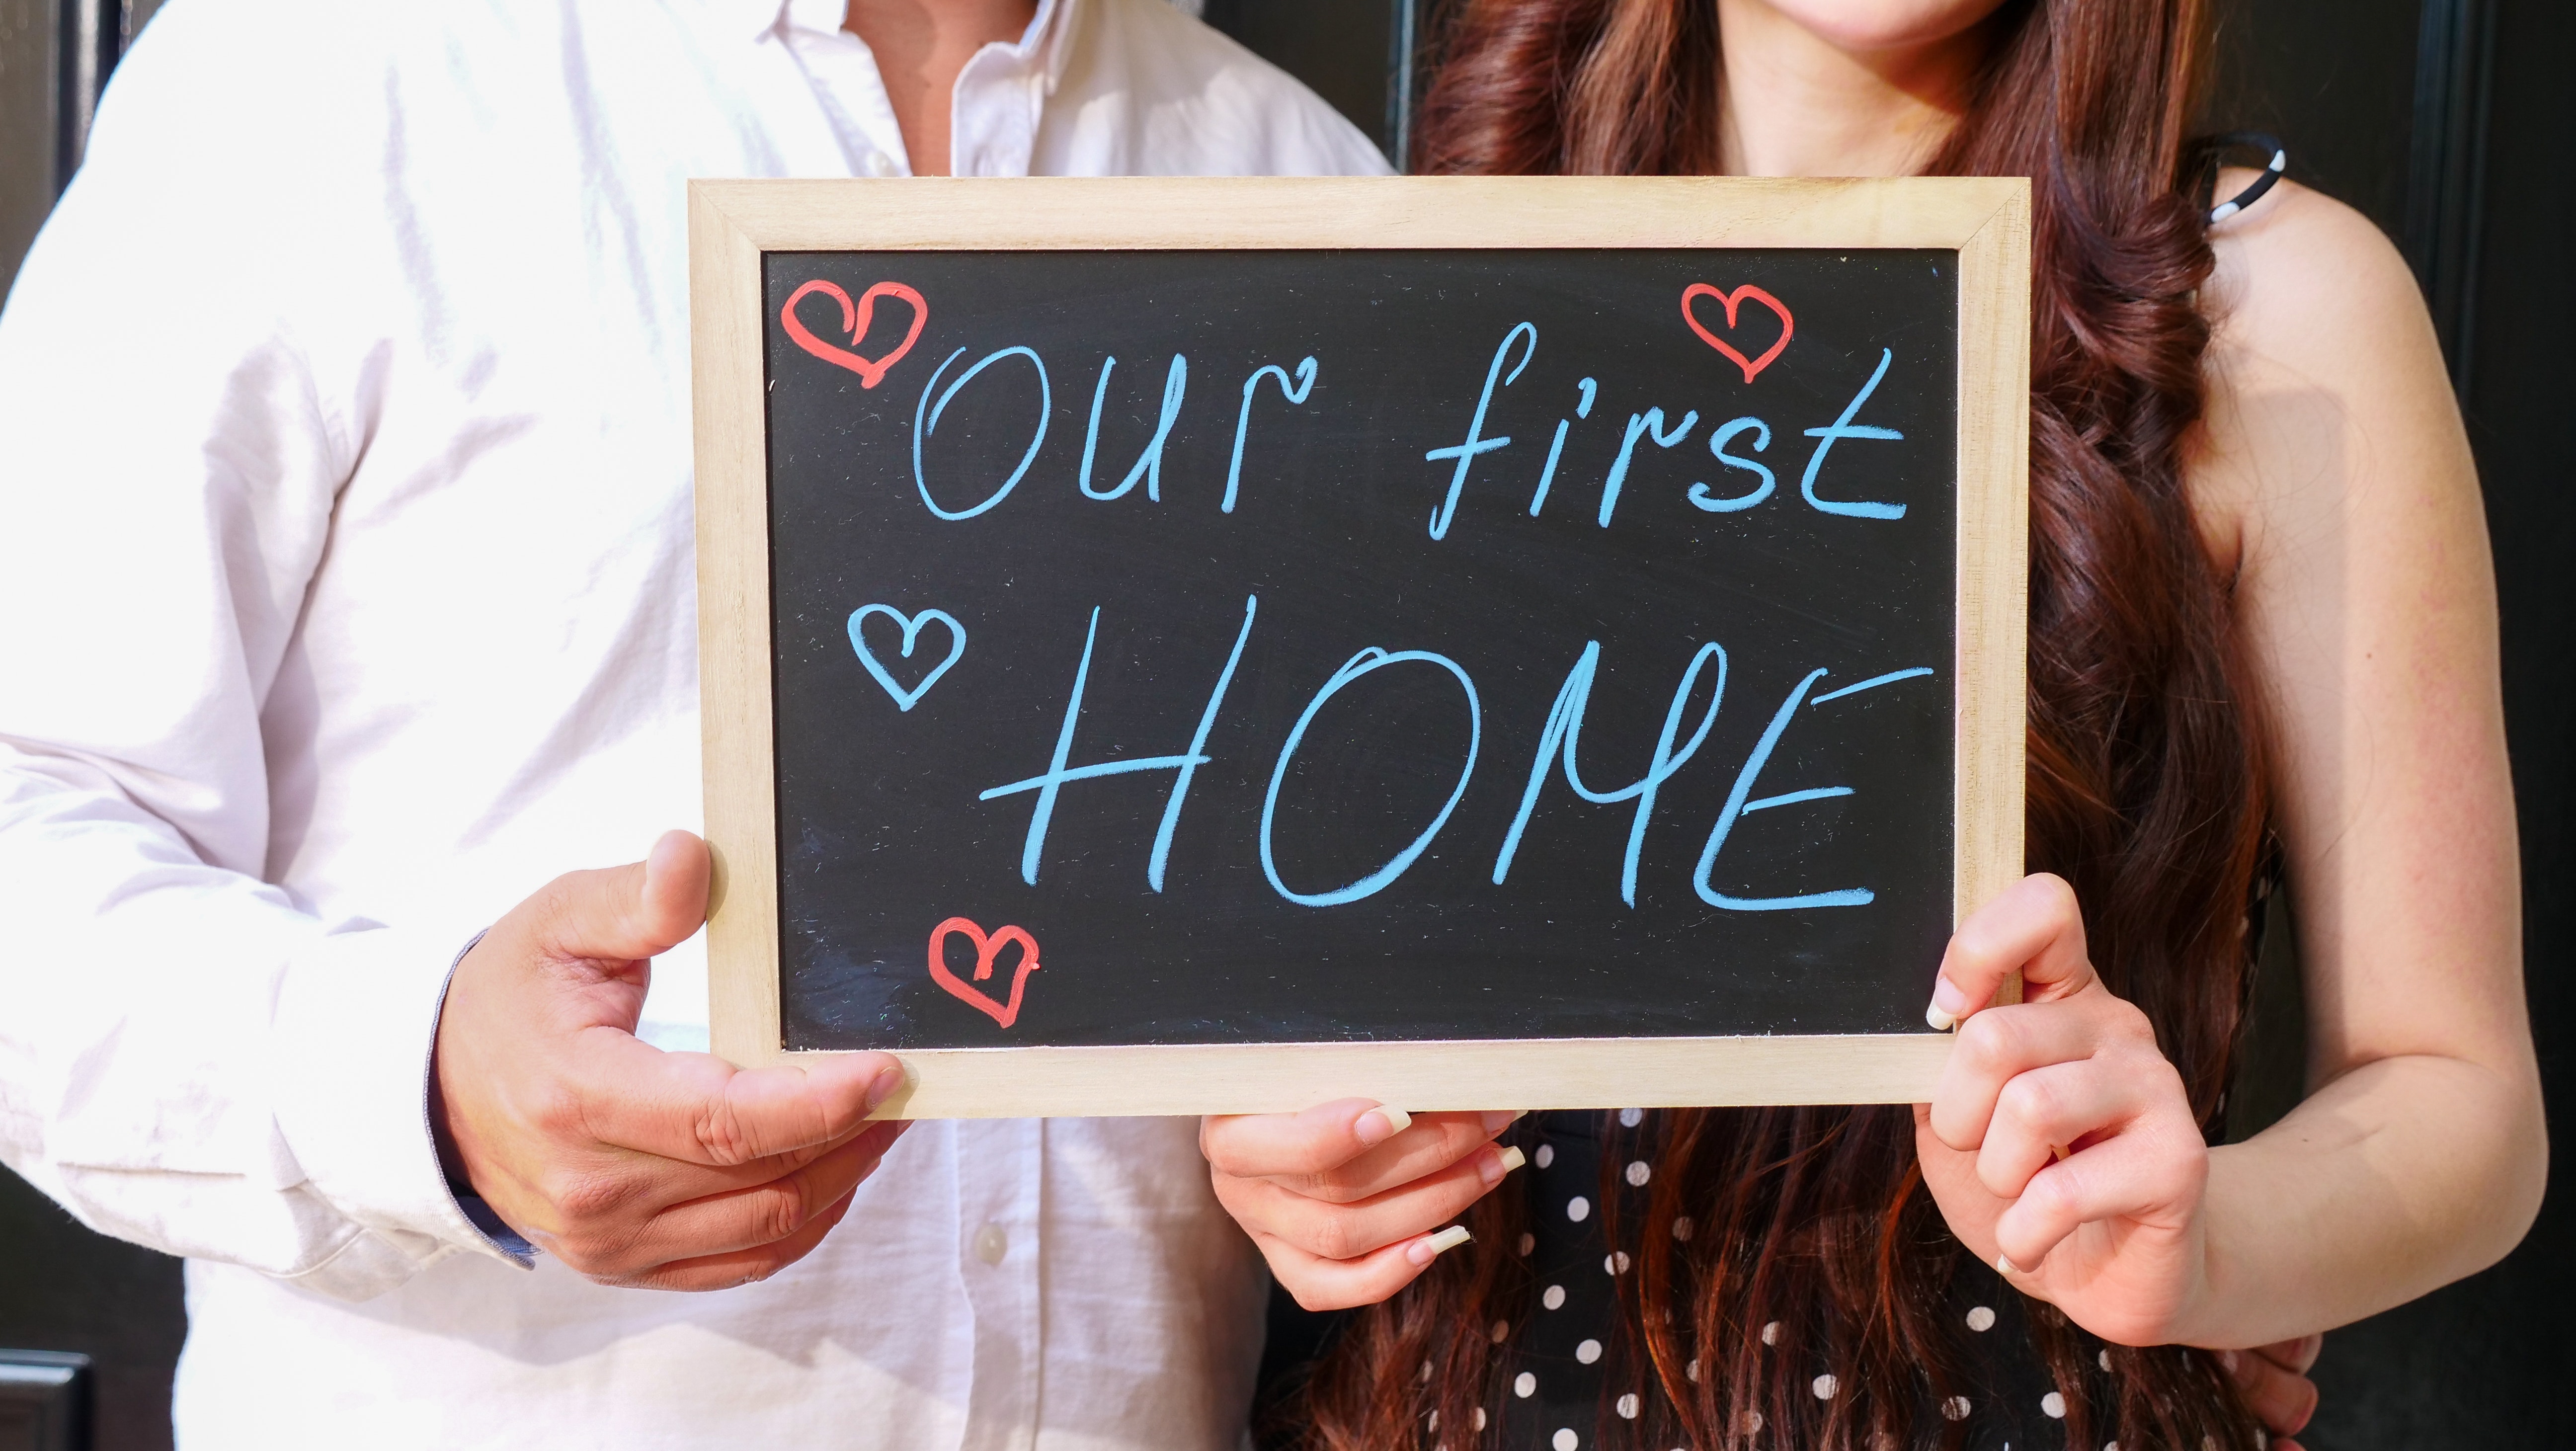 Our first
HOME